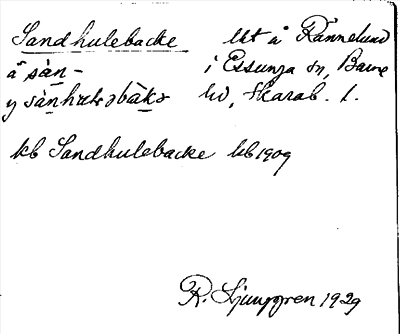 Sandhulebacke lht å Rännelund
ä sàn- i Essunga sn, Barne
y sànhuləbàkə hd, Skarab. l.
kb Sandhulebacke kb 1909
R. Ljunggren 1929